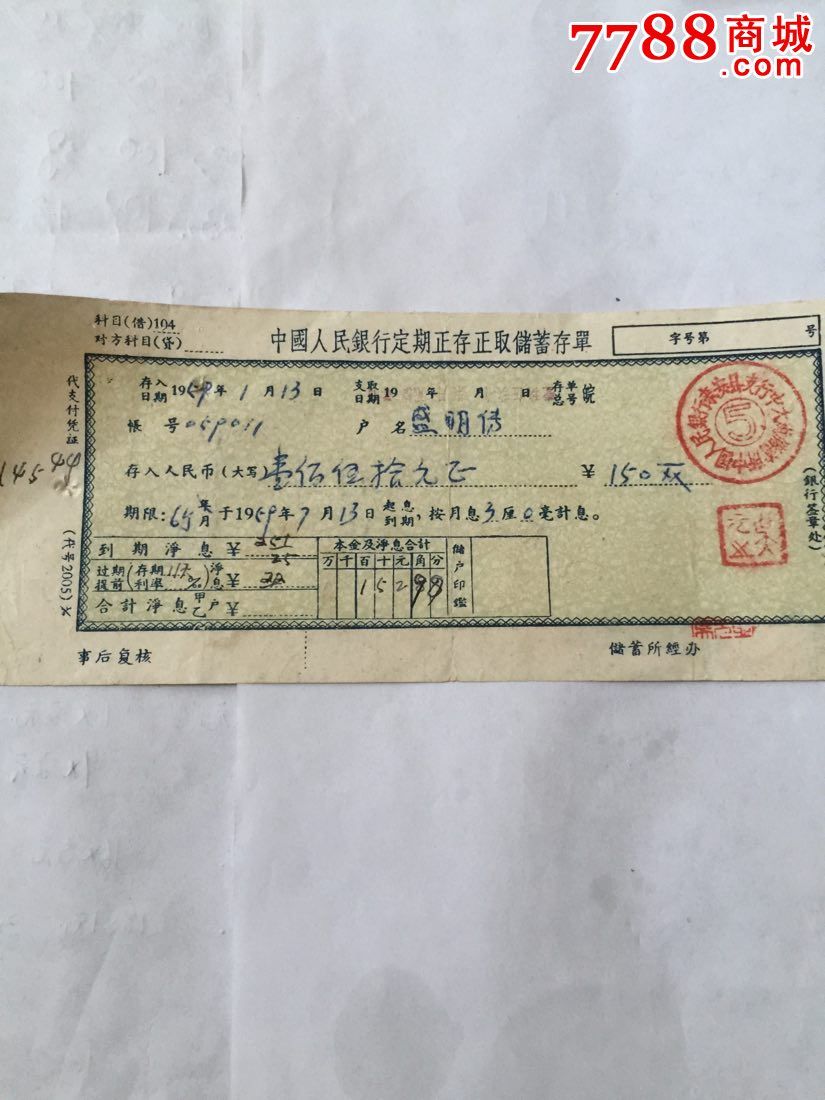 7788商城
.com
科目(借)104
对方科目(贷)
中國人民銀行定期正存正取儲蓄存單
字号第 号
代支付凭証
(代号2005)
存入日期1969年1月13日 支取日期19 年 月 日 存单总号
帳号059011 户名盛明傳
存入人民币(大写)壹佰伍拾元正 ¥150
期限:6个月于1969年7月13日起息到期,按月息3厘0毫計息。
(銀行签章处)
到期淨息¥251
25
过期提前(存期利率 %)淨息¥22
合計淨息甲乙户¥
本金及淨息合計
万千百十元角分
15299
儲户印鑑
14544
5
事后复核
儲蓄所經办